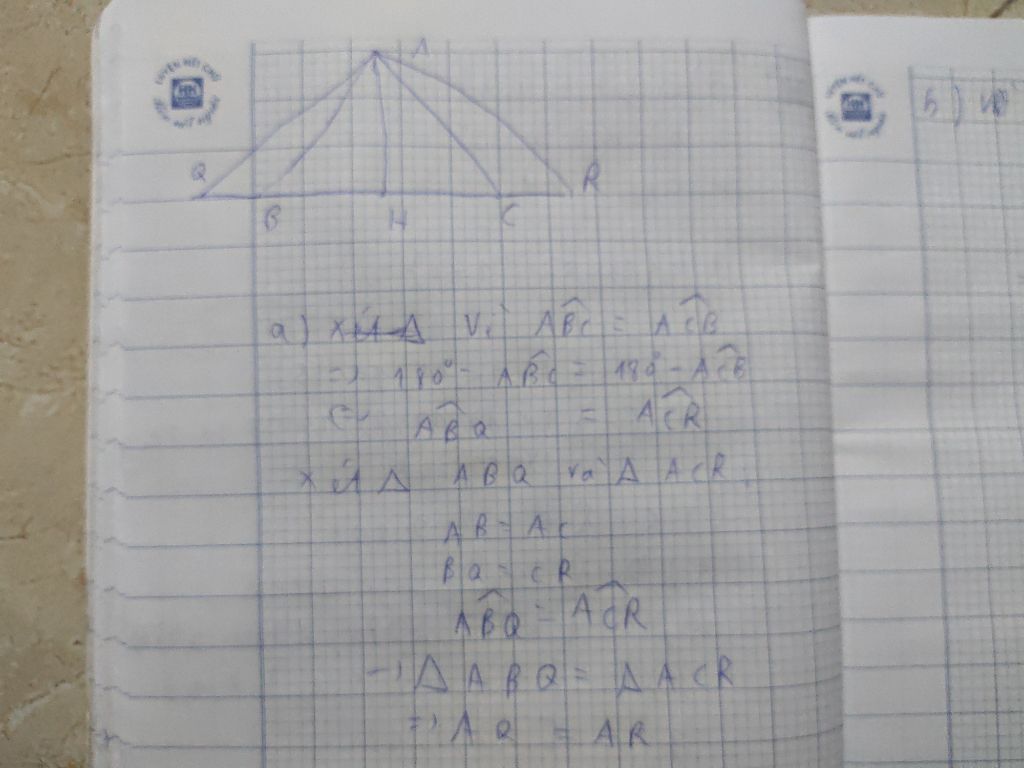 A
Q
R
B H C
5)
a) Xét Δ Vì ABC = ACB
=> 180° - ABC = 180° - ACB
ABQ = ACR
Xét Δ ABQ và Δ ACR
AB = AC
BQ = CR
ABQ = ACR
=> Δ ABQ = Δ ACR
=> AQ = AR